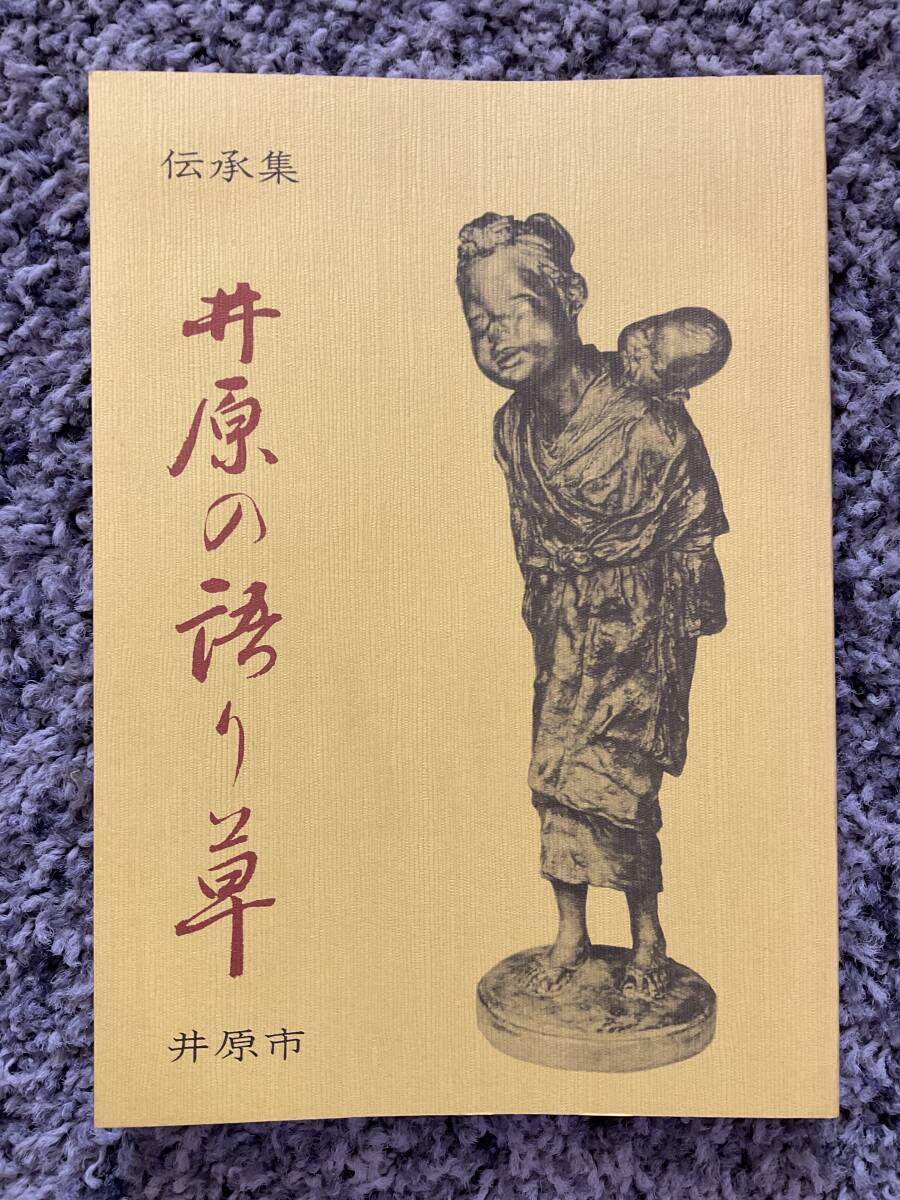 伝承集
井原の語り草
井原市